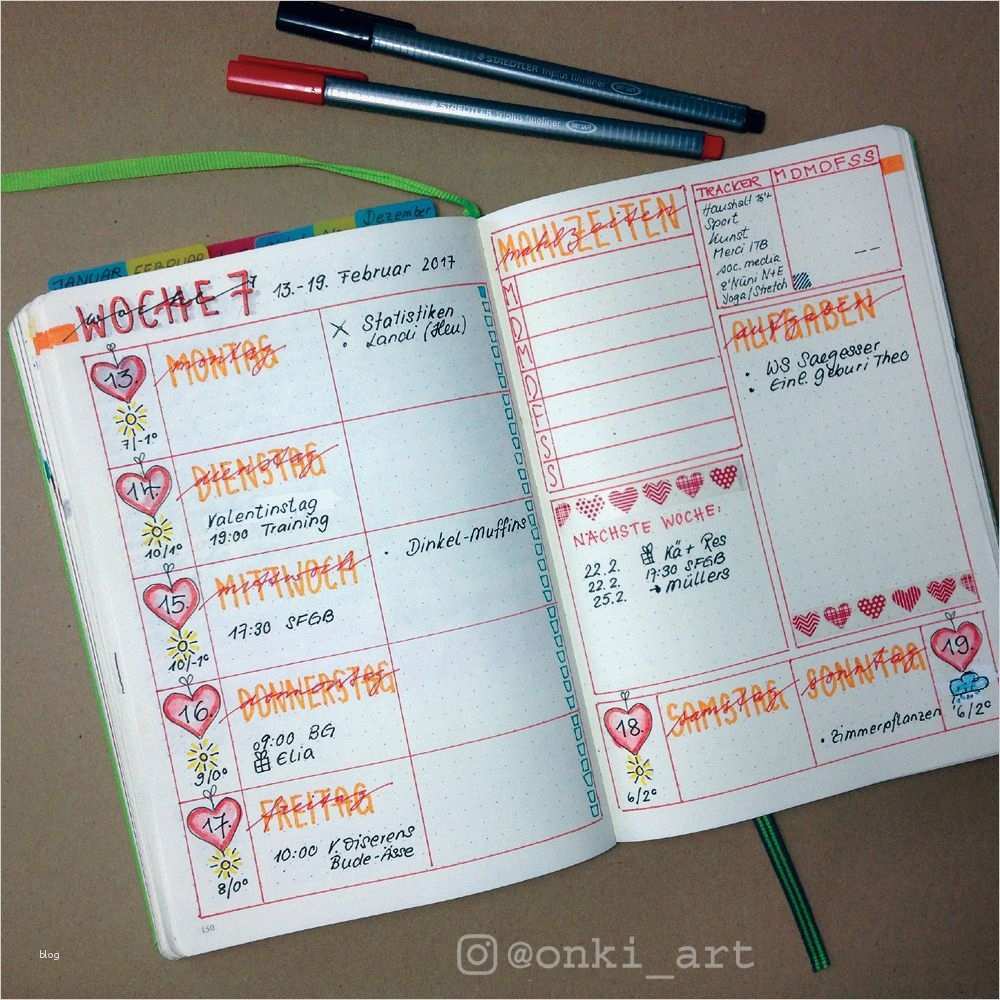 STAEDTLER triplus fineliner
STAEDTLER triplus fineliner
Dezember
JANUAR
FEBRUAR
WOCHE 7
13.-19. Februar 2017
13.
MONTAG
montag
X Statistiken
• Landi (Heu)
7/-1°
14.
DIENSTAG
dienstag
10/1°
Valentinstag
19:00 Training
15
MITTWOCH
mittwoch
• Dinkel-Muffins
10/-1°
17:30 SFGB
16.
DONNERSTAG
donnerstag
9/0°
09:00 BG
Elia
17.
FREITAG
freitag
8/0°
10:00 V. Diserens
Bude-Ässe
150
MAHLZEITEN
mahlzeiten
M
D
M
D
F
S
S
TRACKER M D M D F S S
Haushalt
Sport
Kunst
Merci ITB
soc. media
z'Nüni N+E
Yoga/Stretch
AUFGABEN
aufgaben
• WS Saegesser
• Einl. Geburi Theo
NÄCHSTE WOCHE:
22.2. Kä + Res
22.2. 17:30 SFGB
25.2. → Müllers
18.
SAMSTAG
samstag
6/2°
SONNTAG
sonntag
19.
• Zimmerpflanzen
6/2°
blog
@onki_art